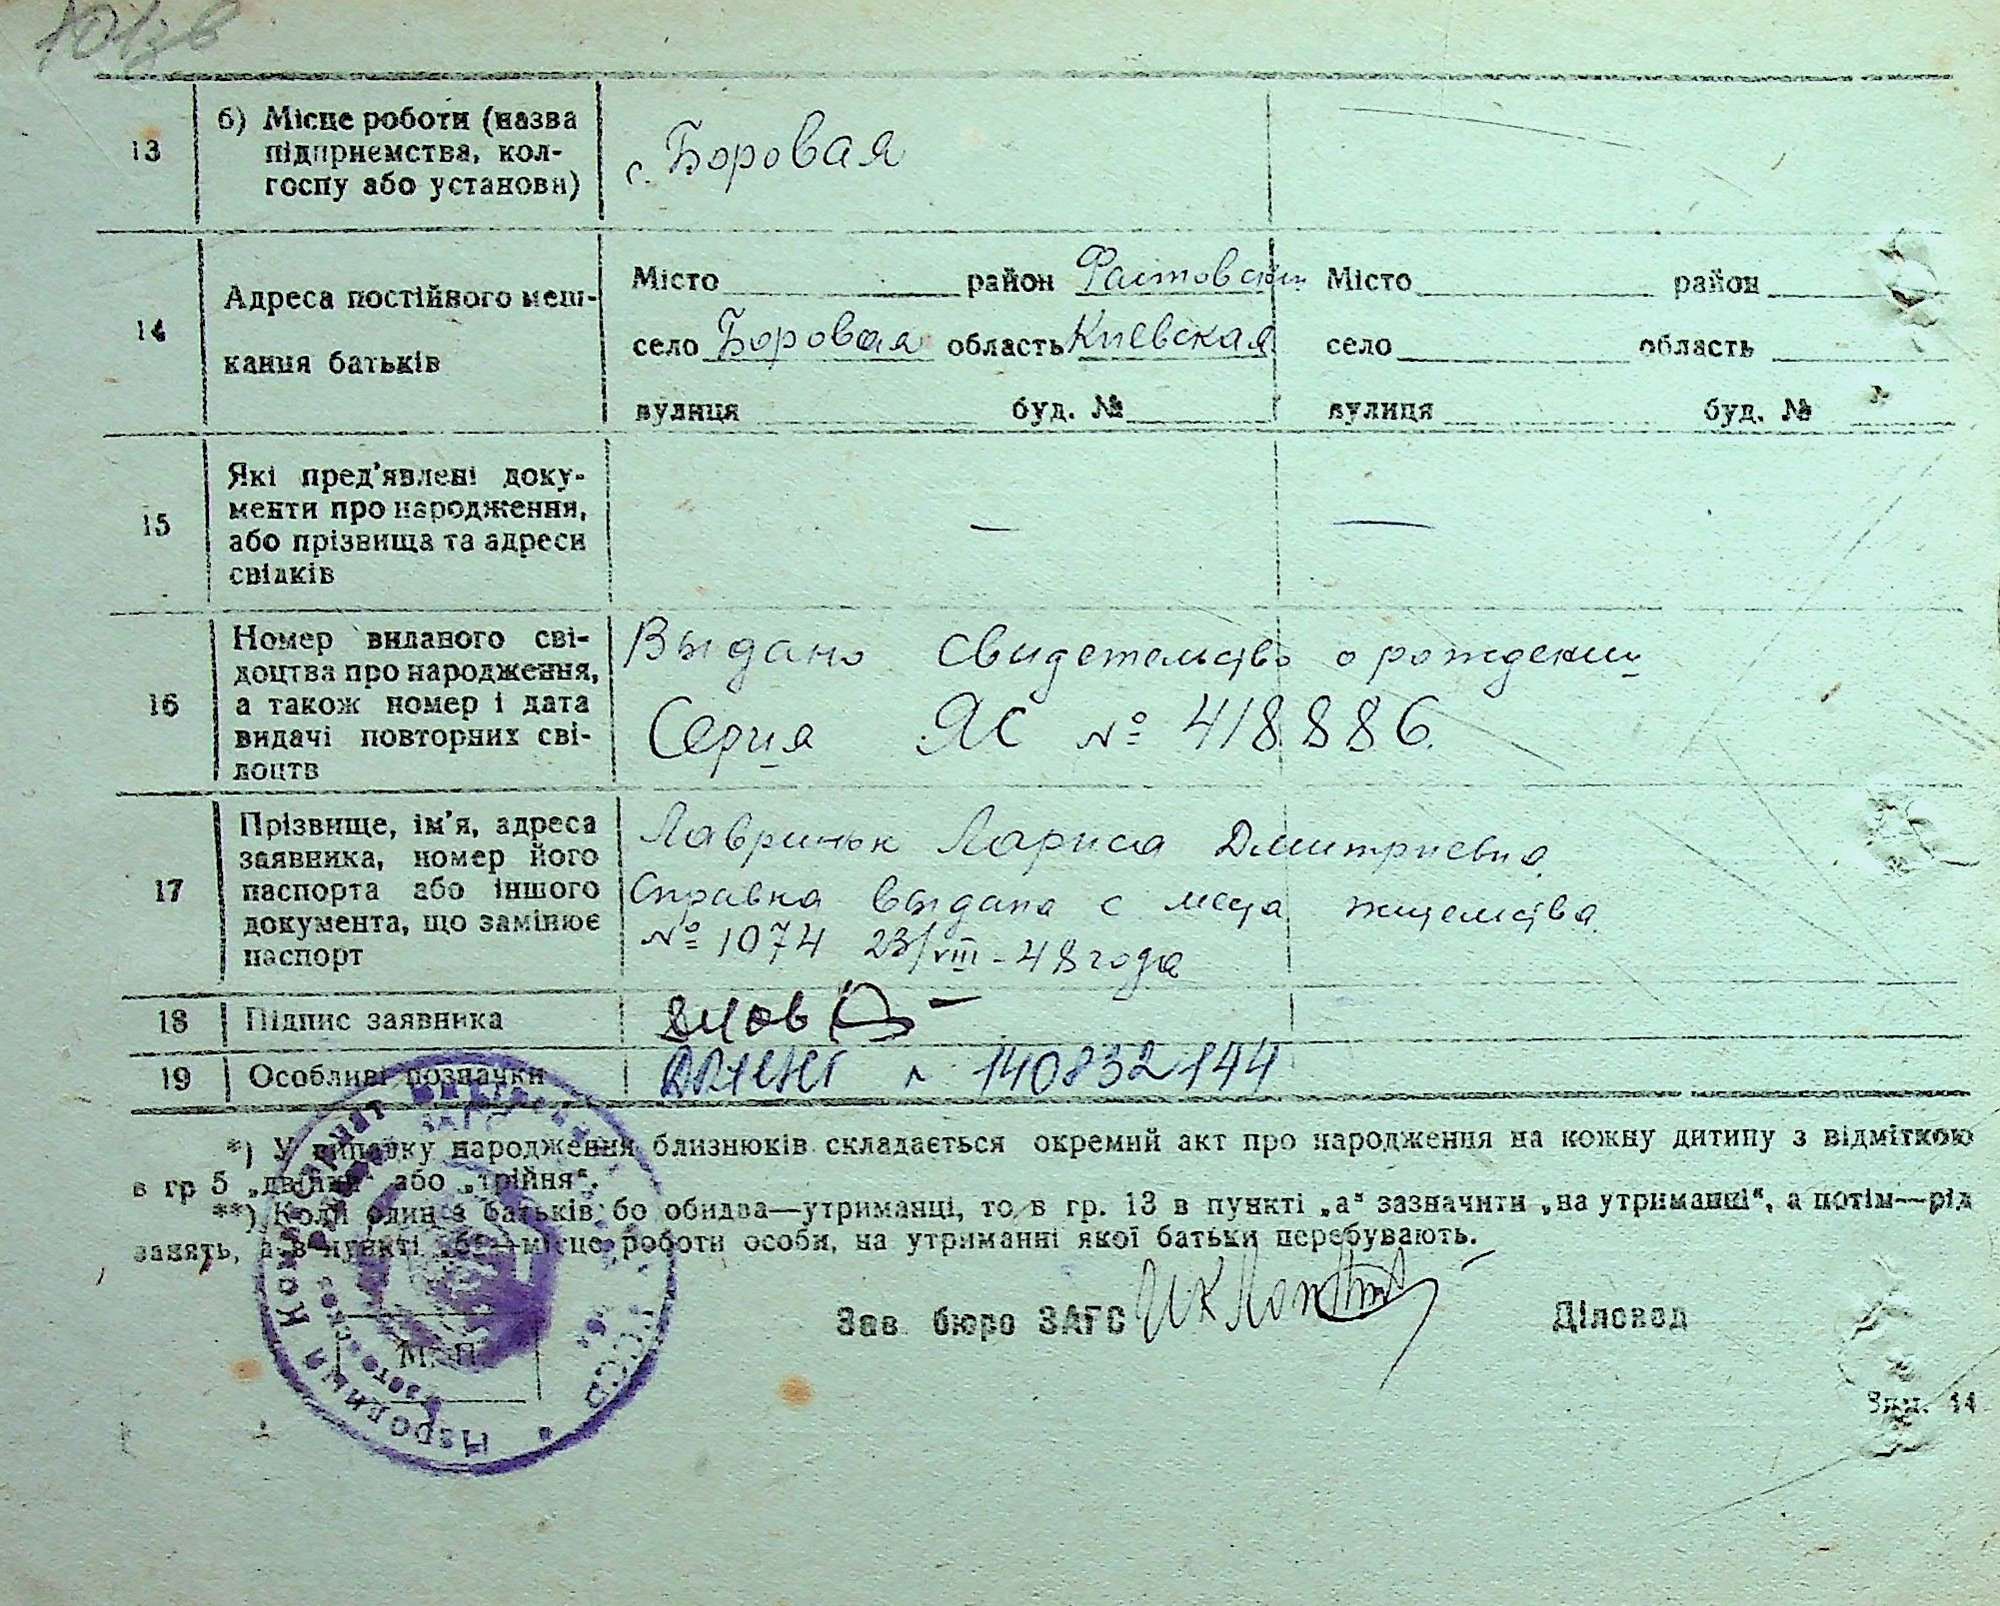 101зв
13
б) Місце роботи (назва
підприємства, кол-
госпу або установи)
с. Боровая
14
Адреса постійного меш-
кання батьків
Місто район Фастовский
село Боровая область Киевская
вулиця буд. №
Місто район
село область
вулиця буд. №
15
Які пред'явлені доку-
менти про народження,
або прізвища та адреси
свідків
—
—
16
Номер виданого сві-
доцтва про народження,
а також номер і дата
видачі повторних сві-
доцтв
Выдано свидетельство о рождении
Серия ЯС № 418886.
17
Прізвище, ім'я, адреса
заявника, номер його
паспорта або іншого
документа, що замінює
паспорт
Лавринюк Лариса Дмитриевна
Справка выдана с места жительства
№ 1074 23/VIII-48 года
18
Підпис заявника
19
Особливі позначки
140832144
*) У випадку народження близнюків складається окремий акт про народження на кожну дитину з відміткою
в гр 5 „двійня" або „трійня".
**) Коли один з батьків бо обидва—утриманці, то в гр. 13 в пункті „а" зазначити „на утриманні", а потім—рід
занять, а в пункті „б"—місце роботи особи, на утриманні якої батьки перебувають.
Зав бюро ЗАГС
Діловод
М. П.
Зам. 14
Народный Комиссариат Внутренних
ЗАГС
УССР